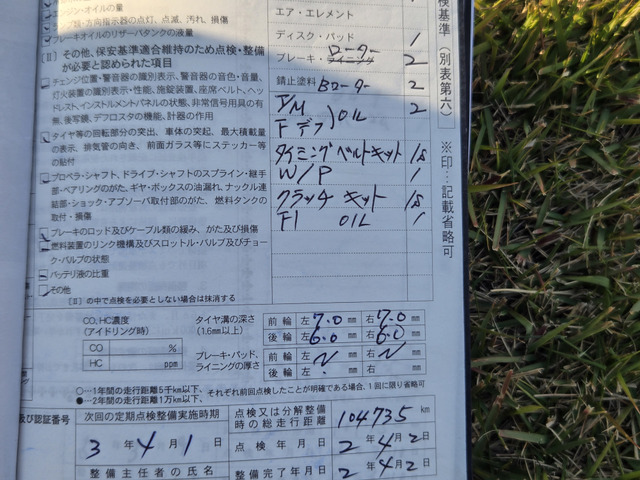 ンジン・オイルの量
類・方向指示器の点灯、点滅、汚れ、損傷
ブレーキオイルのリザーバタンクの液量
〔Ⅱ〕その他、保安基準適合維持のため点検・整備
が必要と認められた項目
チェンジ位置・警音器の識別表示、警音器の音色・音量、
灯火装置の識別表示・性能、施錠装置、座席ベルト、ヘッ
ドレスト、インストルメントパネルの状態、非常信号用具の有
無、後写鏡、デフロスタの機能、計器の作用
タイヤ等の回転部分の突出、車体の突起、最大積載量
の表示、排気管の向き、前面ガラス等にステッカー等
の貼付
プロペラ・シャフト、ドライブ・シャフトのスプライン・継手
部・ベアリングのがた、ギヤ・ボックスの油漏れ、ナックル連
結部・ショック・アブソーバ取付部のがた、燃料タンクの
取付・損傷
ブレーキのロッド及びケーブル類の緩み、がた及び損傷
燃料装置のリンク機構及びスロットル・バルブ及びチョー
ク・バルブの状態
バッテリ液の比重
その他
〔Ⅱ〕の中で点検を必要としない場合は抹消する
エア・エレメント
ディスク・パッド 1
ブレーキ・ローター ライニング 2
錆止塗料 Bローター 2
T/M
Fデフ)OIL 2
タイミングベルトキット 1s
W/P 1
クラッチ キット 1s
OIL 1
検基準(別表第六)
※印…記載省略可
CO、HC濃度
(アイドリング時)
CO %
HC ppm
タイヤ溝の深さ
(1.6mm以上)
前輪 左 7.0 mm 右 7.0 mm
後輪 左 6.0 mm 右 6.0 mm
ブレーキ・パッド、
ライニングの厚さ
前輪 左 mm 右 mm
後輪 左 mm 右 mm
○…1年間の走行距離5千km以下、
●…2年間の走行距離1万km以下、
それぞれ前回点検したことが明確である場合、1回に限り省略可
及び認証番号
次回の定期点検整備実施時期
3年4月1日
整備主任者の氏名
点検又は分解整備
時の総走行距離
104735 km
点検年月日 2年4月2日
整備完了年月日 2年4月2日